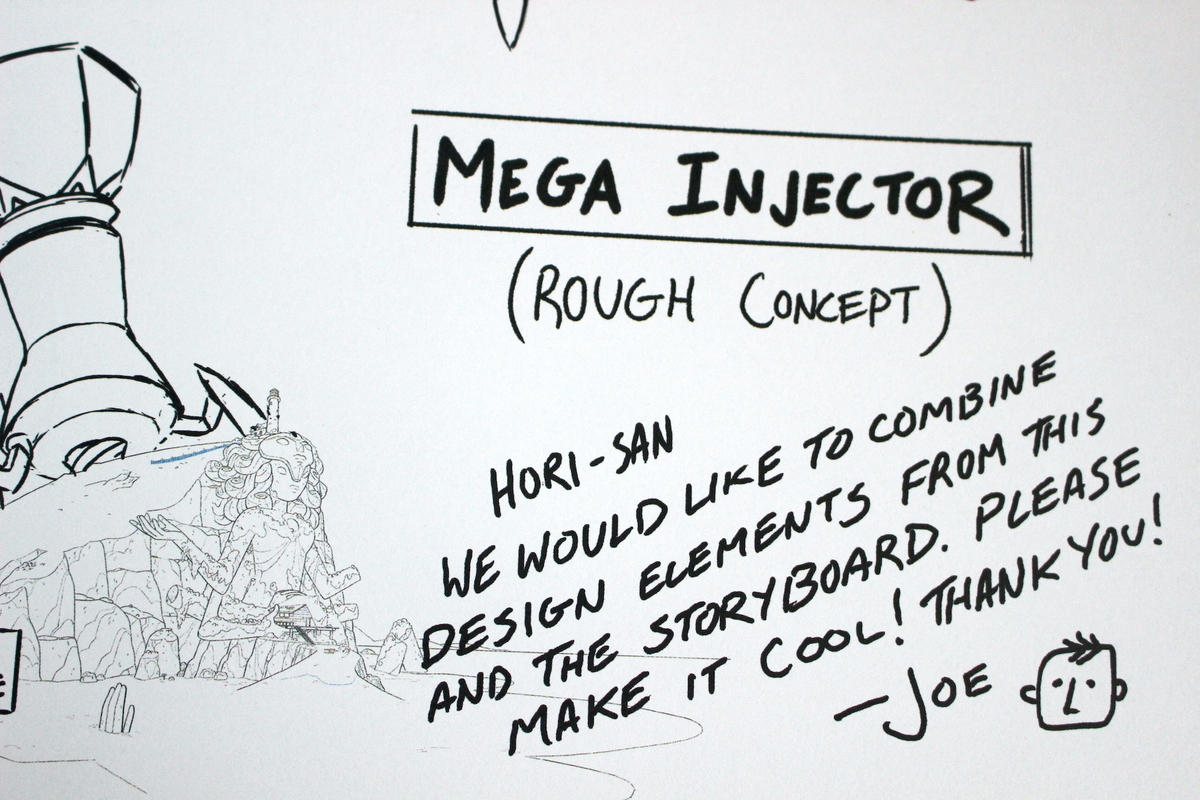 MEGA INJECTOR
(ROUGH CONCEPT)
HORI-SAN
WE WOULD LIKE TO COMBINE
DESIGN ELEMENTS FROM THIS
AND THE STORYBOARD. PLEASE
MAKE IT COOL! THANK YOU!
-JOE